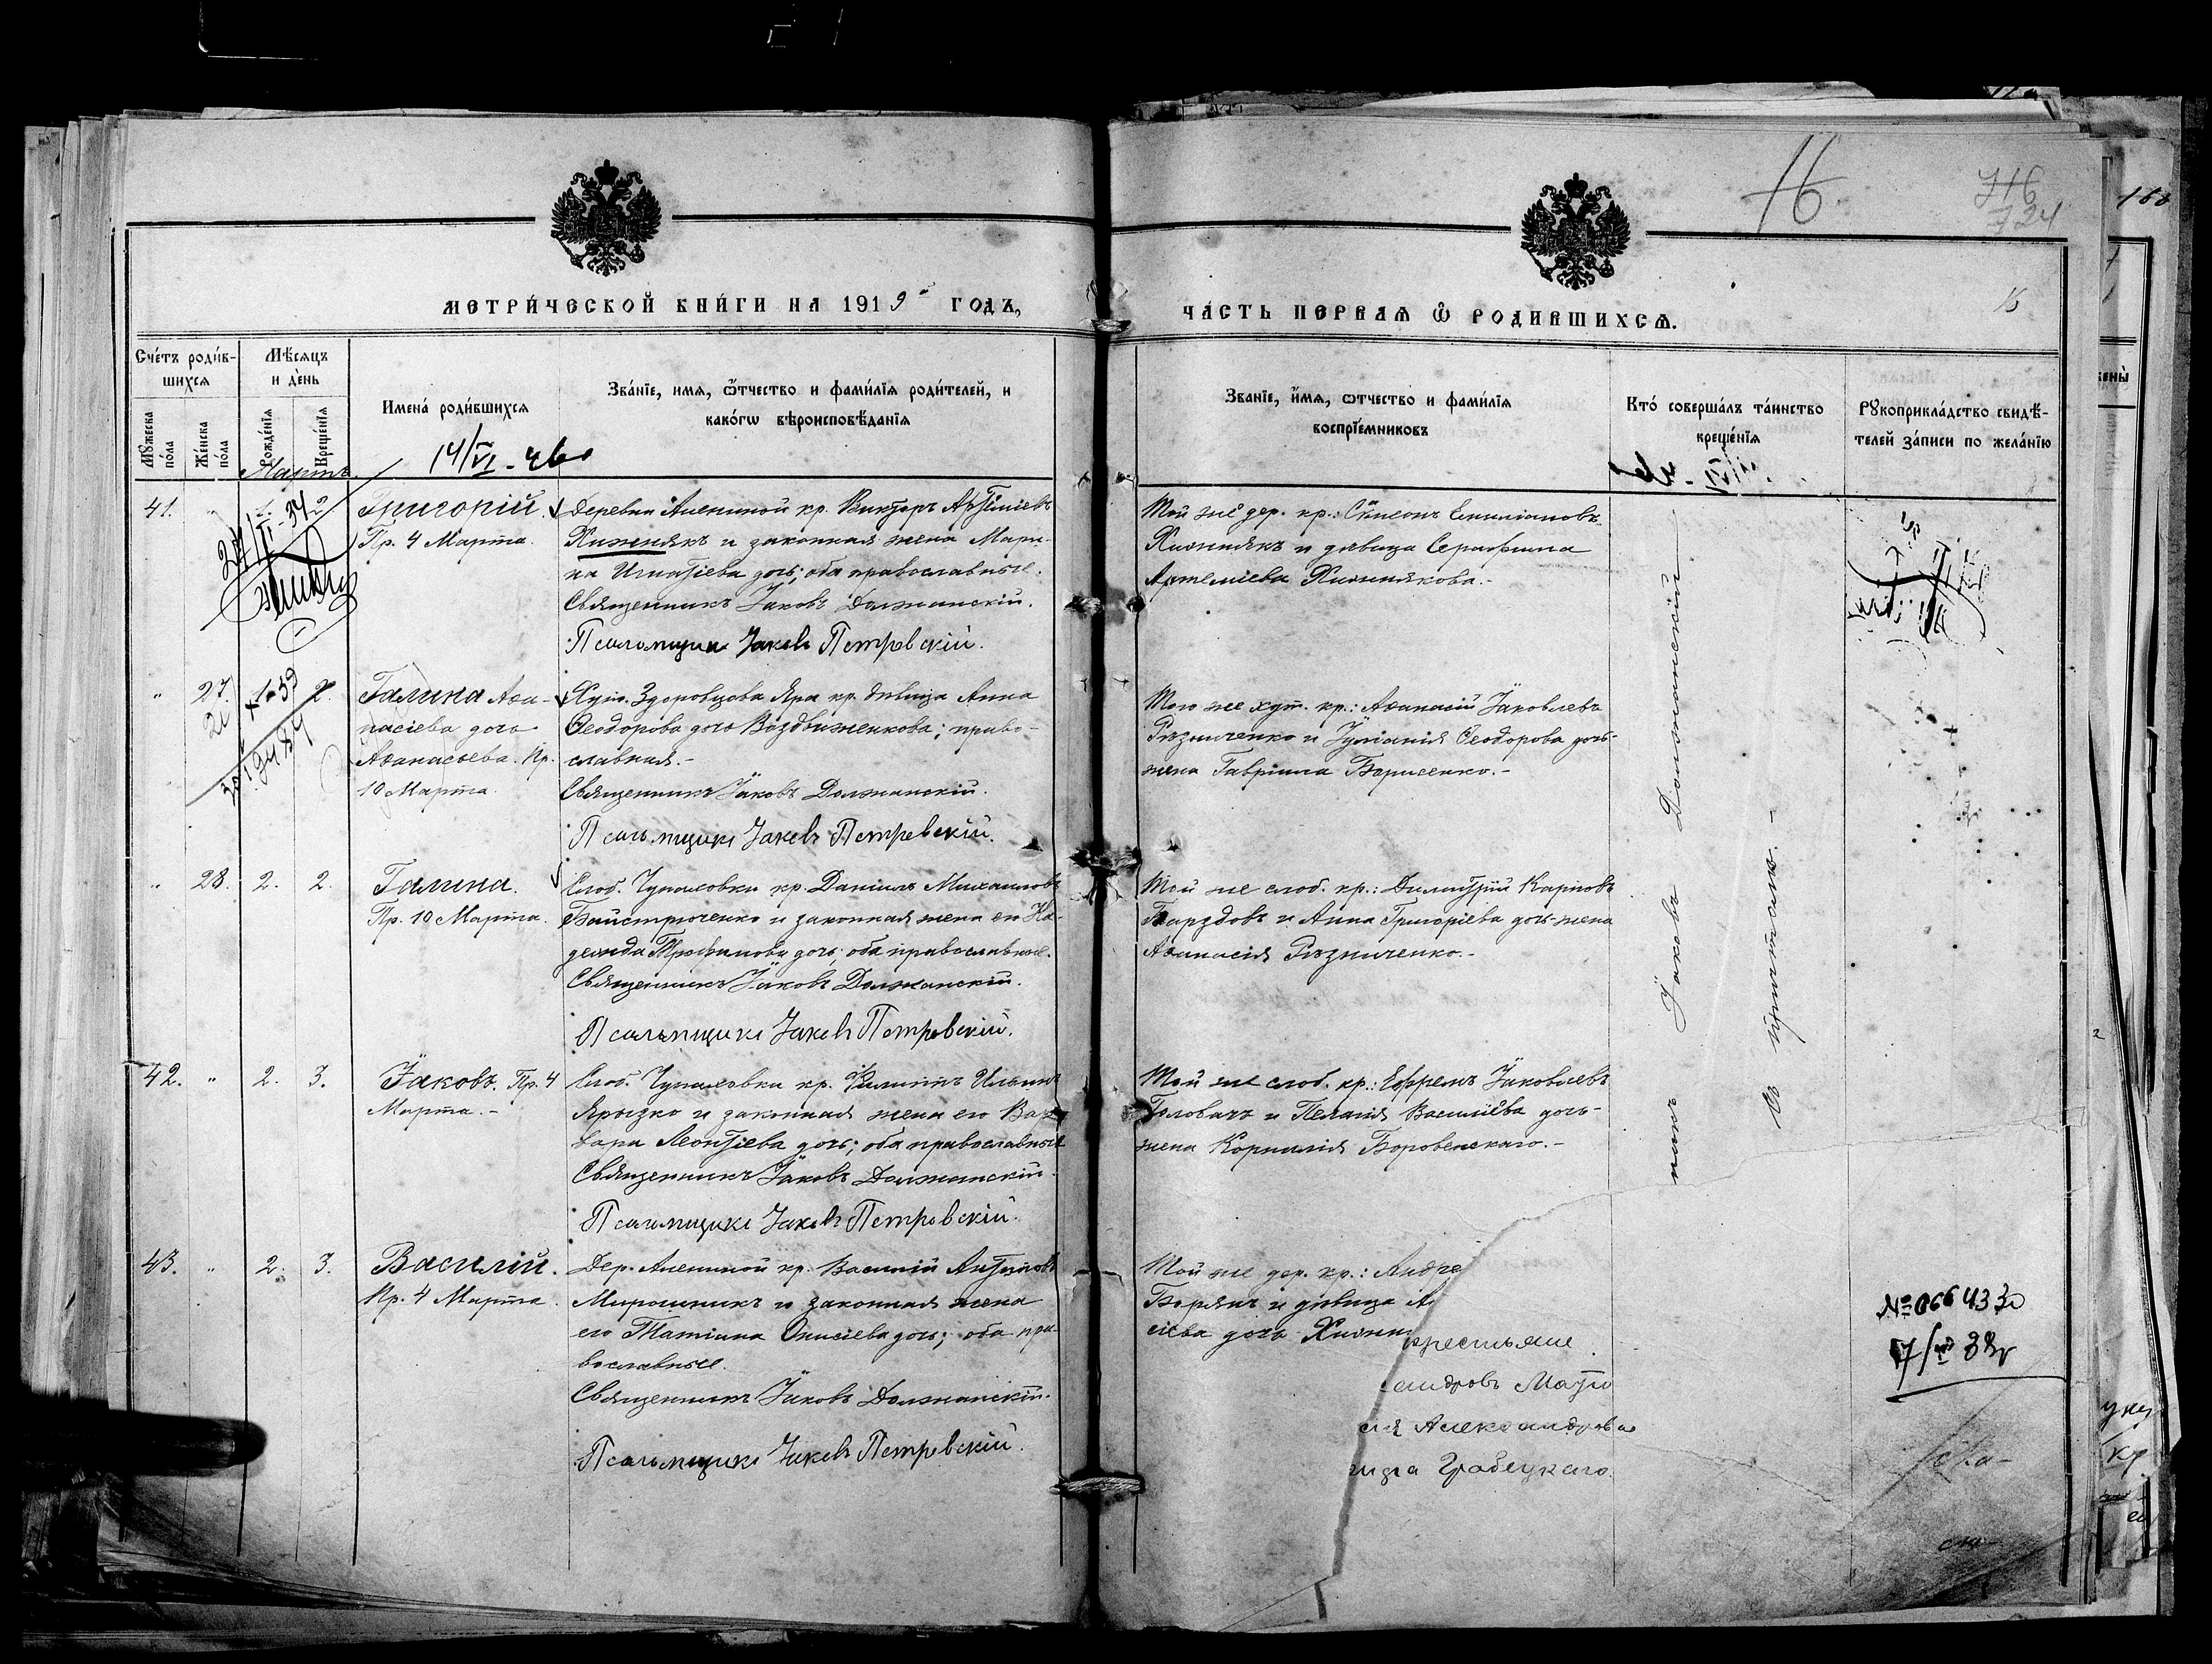 16
716
724
16
МЕТРИ́ЧЕСКОЙ КНИ́ГИ НА 1919й ГОДЪ,
ЧА́СТЬ ПЕ́РВАѦ Ѽ РОДИ́ВШИХСѦ.
Сче́тъ роди́в-
шихсѧ
Мꙋ́жеска по́ла
Же́нска по́ла
Мѣ́сѧцъ
и де́нь
Рожде́нїѧ
Креще́нїѧ
Имена́ роди́вшихсѧ
Зва́нїе, имѧ, ѻ́тчество и фами́лїѧ роди́телей, и
како́гѡ вѣроисповѣ́данїѧ
Зва́нїе, и́мѧ, ѻтчество и фами́лїѧ
воспрїе́мниковъ
Кто́ соверша́лъ та́инство
креще́нїѧ
Рꙋкоприкла́дство свидѣ́-
телей за́писи по жела́нїю
Мартъ
14/VI-46
41. " 1. 2
Григорій.
Пр. 4 Марта.
Деревни Алениной кр. Викторъ Артеміевъ
Хижнякъ и законная жена Мари-
на Игнатіева дочь; оба православные.
Священникъ Іаковъ Должанскій.
Псаломщикъ Іаковъ Петровскій.
Той же дер. кр.: Симеонъ Емиліановъ
Хижнякъ и дѣвица Серафима
Артеміева Хижнякова.-
" 27. 2.
Галина Аѳа-
насіева дочь
Аѳанасьева. Пр.
10 Марта.
Хут. Здоровцова Яра кр. дѣвица Анна
Ѳеодорова дочь Воздвиженкова; право-
славная.-
Священникъ Іаковъ Должанскій.
Псаломщикъ Іаковъ Петровскій.
Того же хут. кр.: Аѳанасій Іаковлевъ
Рѣзниченко и Іуліанія Ѳеодорова дочь-
жена Гавріила Борисенко.-
" 28. 2. 2.
Галина.
Пр. 10 Марта.
Слоб. Чупаховки кр. Даніилъ Михаиловъ
Байстрюченко и законная жена его На-
дежда Трофимова дочь; оба православные.
Священникъ Іаковъ Должанскій.
Псаломщикъ Іаковъ Петровскій.
Той же слоб. кр.: Димитрій Карповъ
и Анна Григоріева дочь-жена
Аѳанасія Рѣзниченко.-
42. " 2. 3.
Іаковъ. Пр. 4
Марта.-
Слоб. Чупаховки кр. Филиппъ Ильинъ
Ярызко и законная жена его Вар-
вара Леонтіева дочь; оба православные
Священникъ Іаковъ Должанскій.
Псаломщикъ Іаковъ Петровскій.
Той же слоб. кр.: Ефремъ Іаковлевъ
Головачъ и Пелагія Василіева дочь-
жена Корнилія Боровенскаго.-
43. " 2. 3.
Василій.
Кр. 4 Марта.
Дер. Алениной кр. Василій Антоновъ
Мирошникъ и законная жена
его Татіана Онисіева дочь; оба пра-
вославные.
Священникъ Іаковъ Должанскій.
Псаломщикъ Іаковъ Петровскій.
Той же дер. кр.: Андре
и дѣвица А
сіева дочь Хижн
крестьяне
сандровъ
сія Александрова
Грабецкаго.
никъ Іаковъ Должанскій
съ причтомъ.-
№066 4330